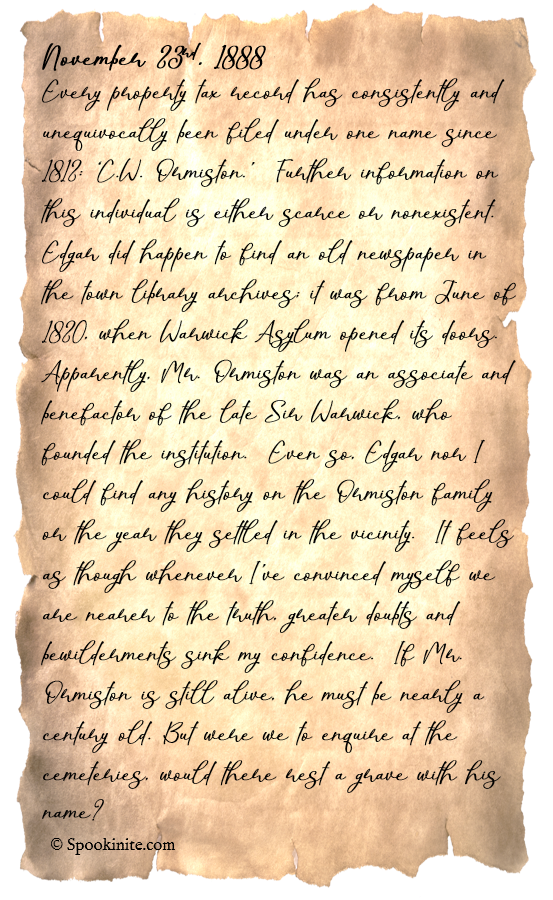 November 23rd, 1888
Every property tax record has consistently and
unequivocally been filed under one name since
1812: 'C.W. Ormiston.' Further information on
this individual is either scarce or nonexistent.
Edgar did happen to find an old newspaper in
the town library archives; it was from June of
1820, when Warwick Asylum opened its doors.
Apparently, Mr. Ormiston was an associate and
benefactor of the late Sir Warwick, who
founded the institution. Even so, Edgar nor I
could find any history on the Ormiston family
or the year they settled in the vicinity. It feels
as though whenever I've convinced myself we
are nearer to the truth, greater doubts and
bewilderments sink my confidence. If Mr.
Ormiston is still alive, he must be nearly a
century old. But were we to enquire at the
cemeteries, would there rest a grave with his
name?
© Spookinite.com